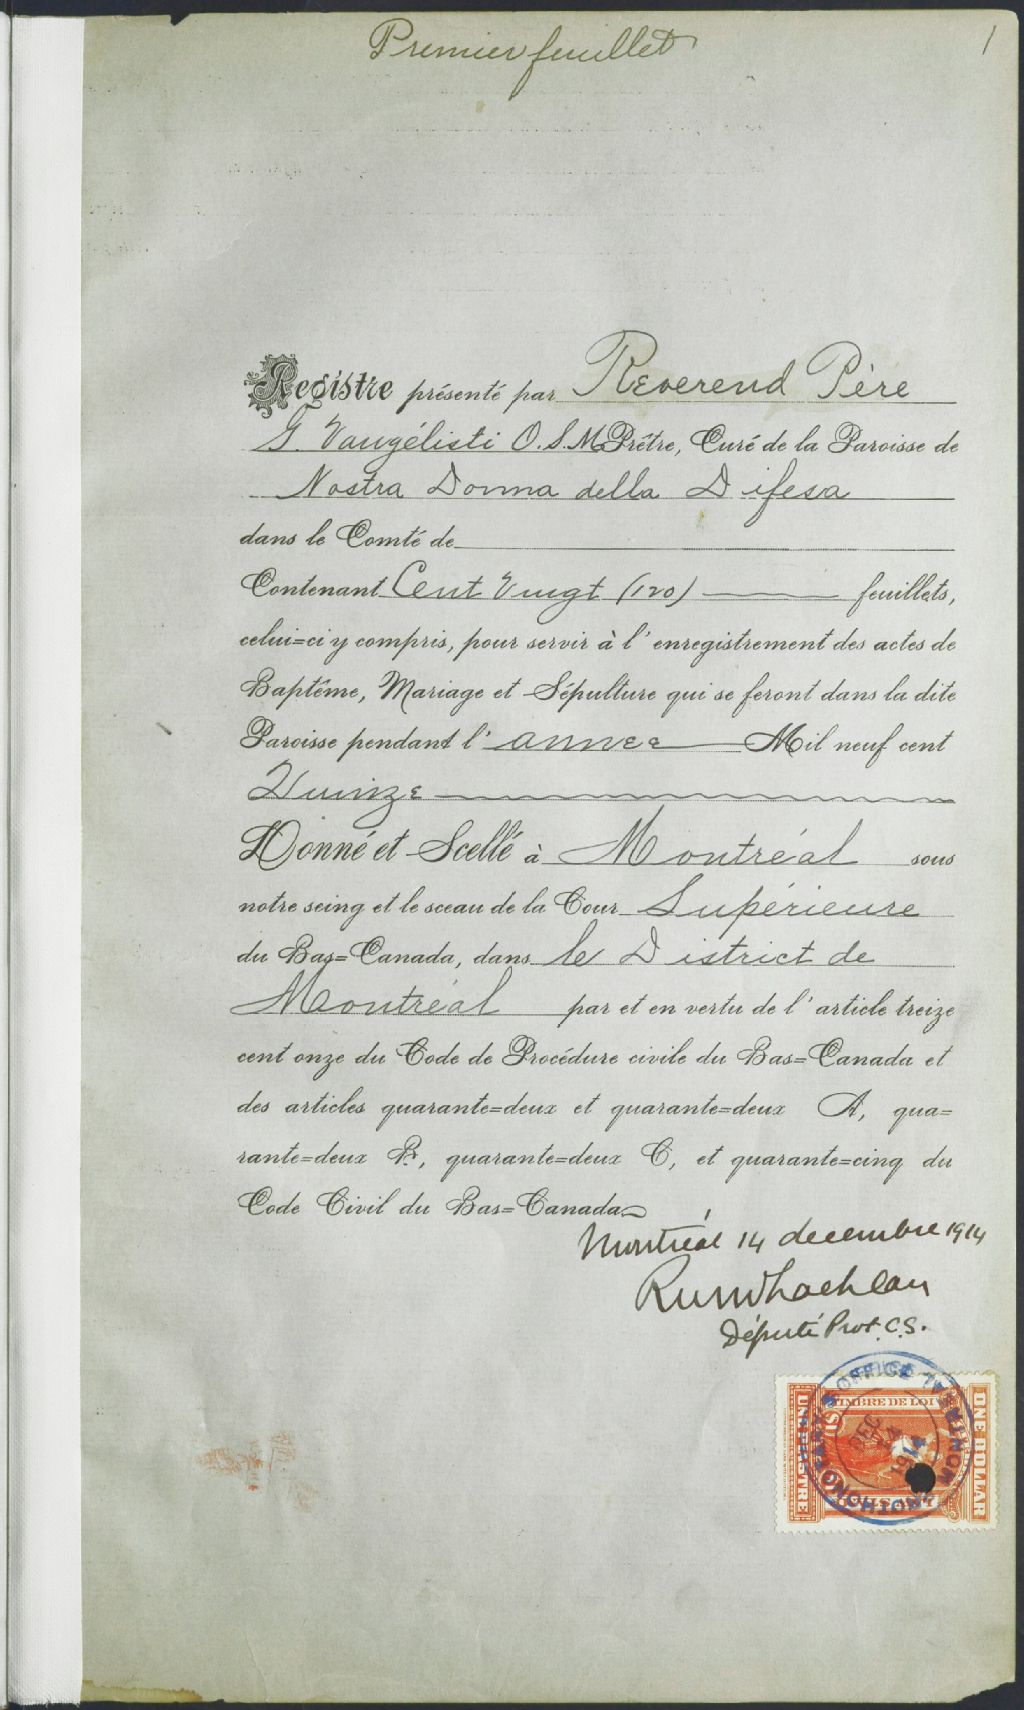 Premier feuillet
1
Registre présenté par Reverend Père
G. Vangélisti O.S.M. Prêtre, Curé de la Paroisse de
Nostra Donna della Difesa
dans le Comté de
Contenant Cent Vingt (120) feuillets,
celui=ci y compris, pour servir à l'enregistrement des actes de
Baptême, Mariage et Sépulture qui se feront dans la dite
Paroisse pendant l'annee Mil neuf cent
Quinze
Donné et Scellé à Montréal sous
notre seing et le sceau de la Cour Supérieure
du Bas=Canada, dans le District de
Montréal par et en vertu de l'article treize
cent onze du Code de Procédure civile du Bas=Canada et
des articles quarante=deux et quarante=deux A, qua=
rante=deux B, quarante=deux C, et quarante=cinq du
Code Civil du Bas=Canada
Montréal 14 decembre 1914
Député Prot. C.S.
TIMBRE DE LOI
UNE PIASTRE
ONE DOLLAR
PROTHONOTARY'S OFFICE MONTREAL
DEC 14 1914